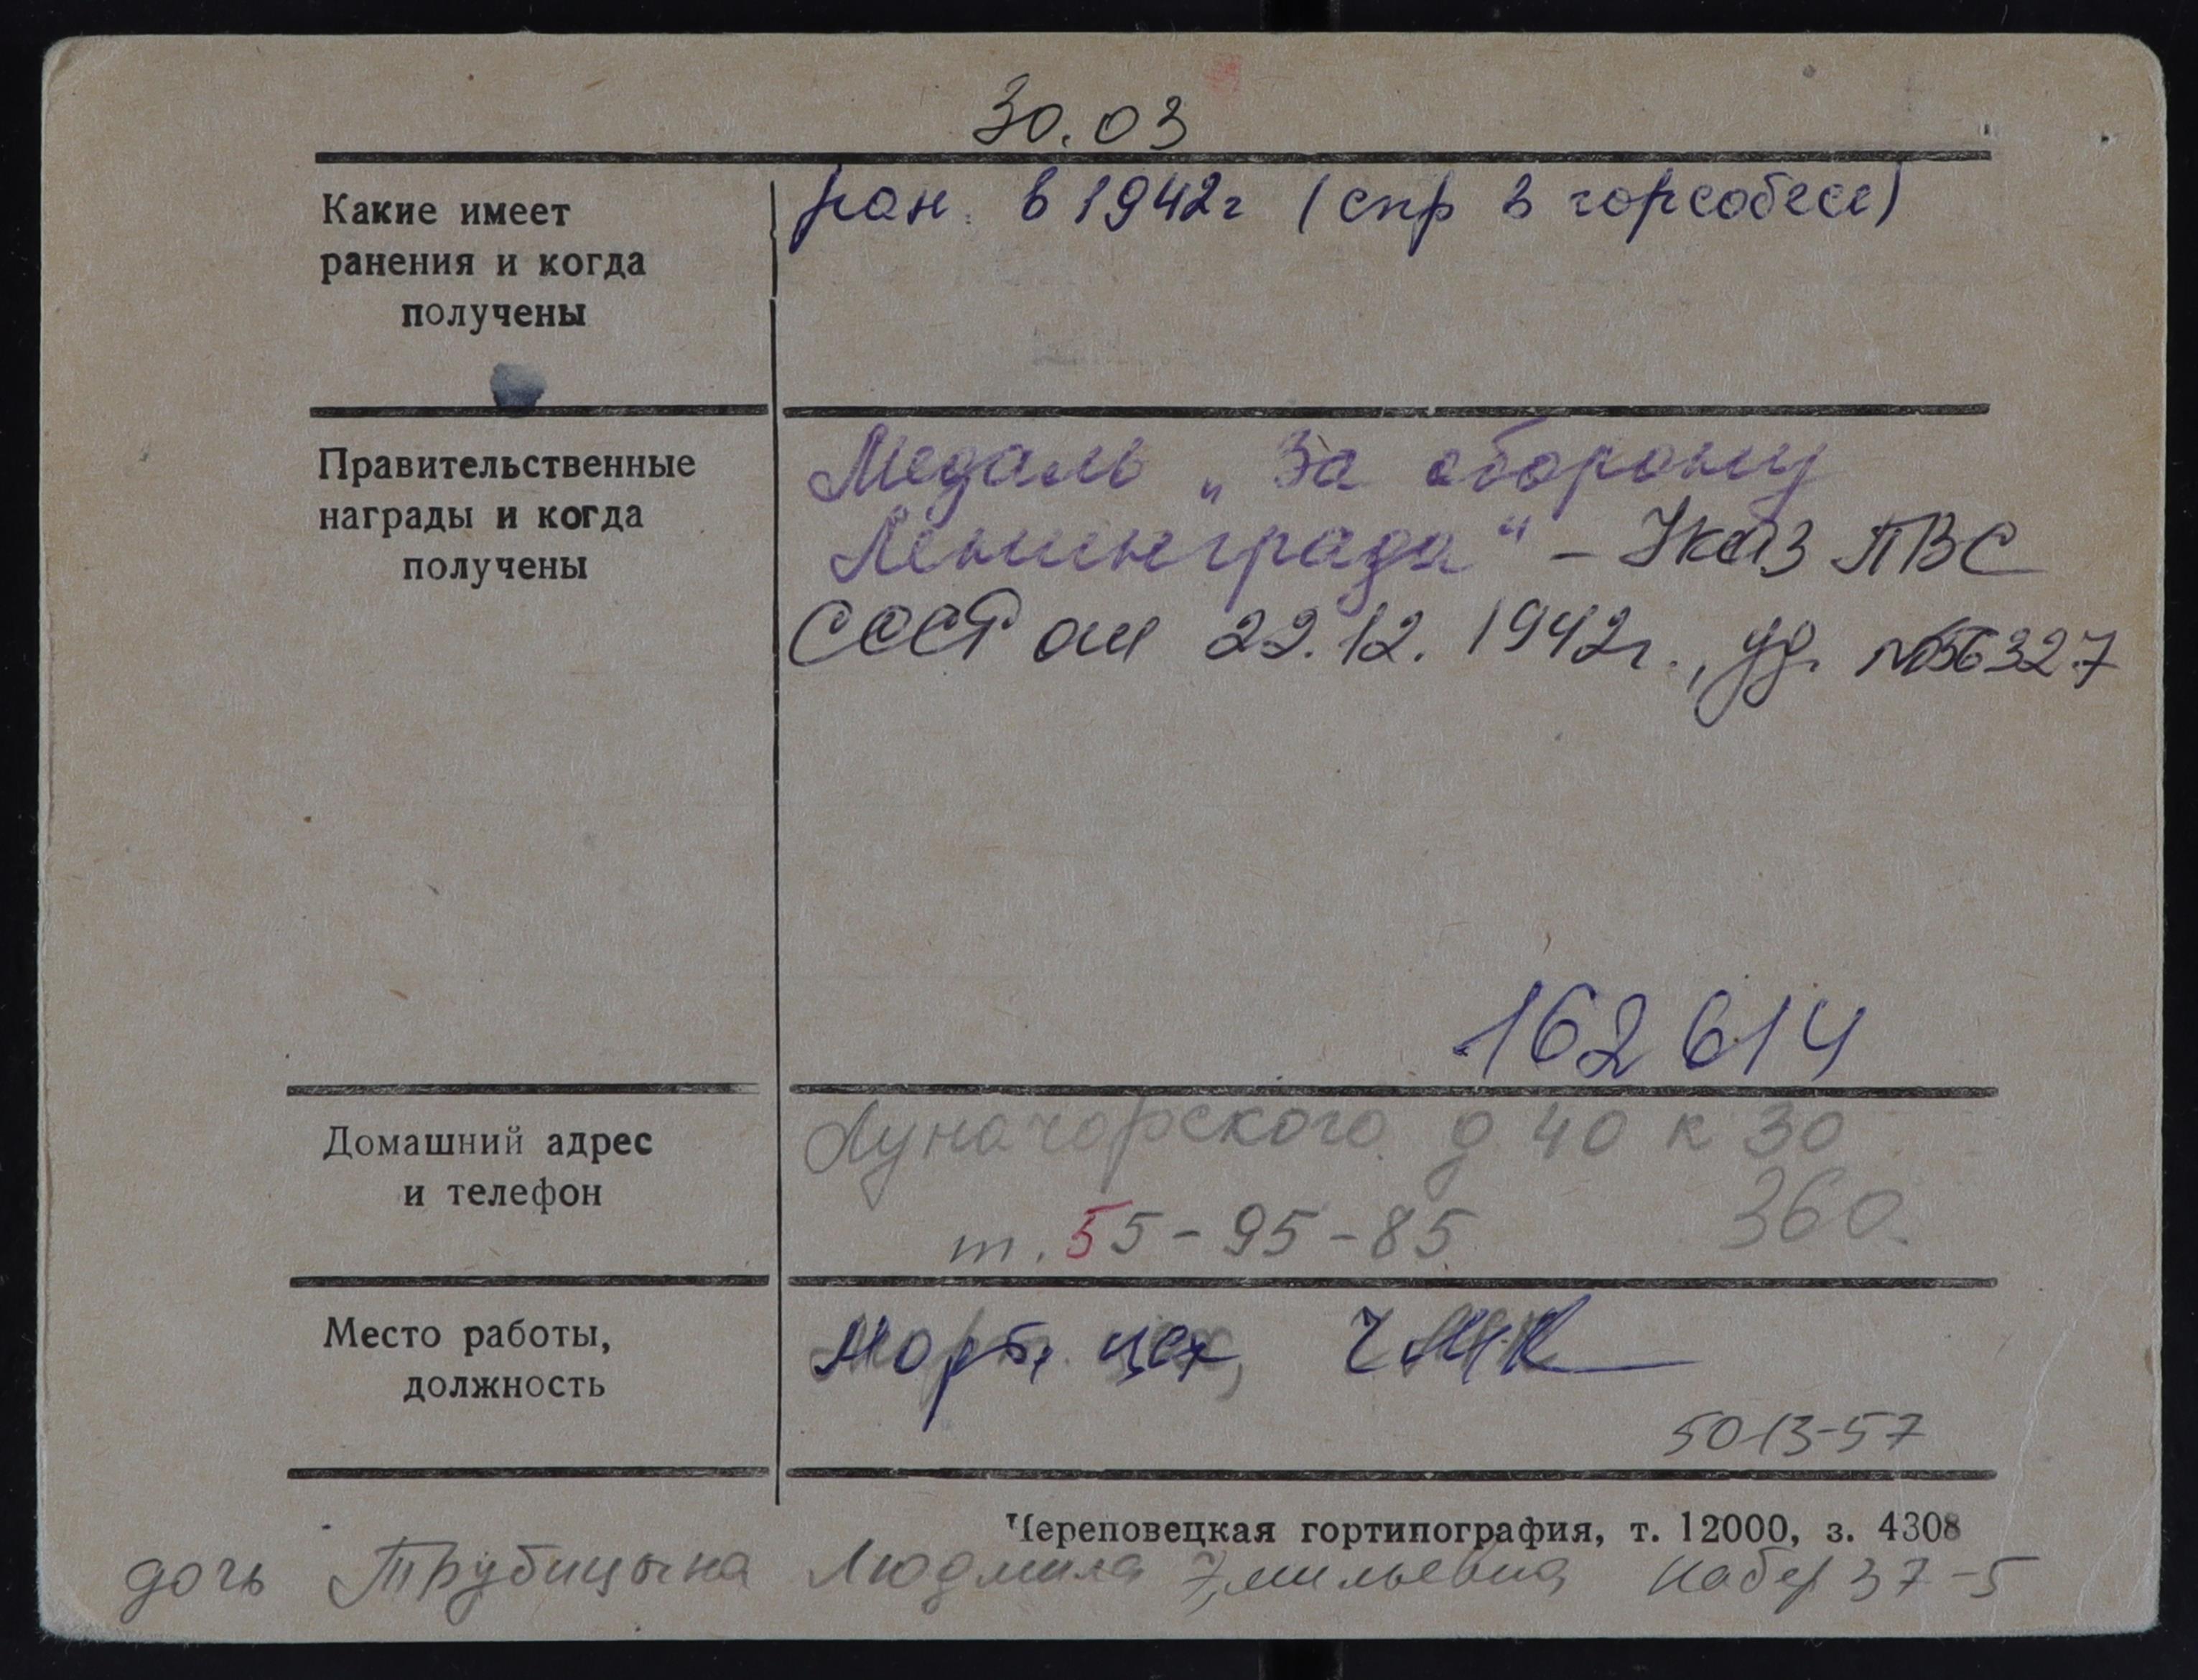 30.03
Какие имеет
ранения и когда
получены
ран. в 1942г (спр в горсобесе)
Правительственные
награды и когда
получены
Медаль „За оборону
Ленинграда“ – Указ ПВС
СССР от 22.12.1942г., уд. №56327
162614
Домашний адрес
и телефон
Луначарского д 40 к 30
360.
т. 55-95-85
Место работы,
должность
цех, ЧМК
5013-57
Череповецкая гортипография, т. 12000, з. 4308
дочь Трубицына Людмила Набер 37-5